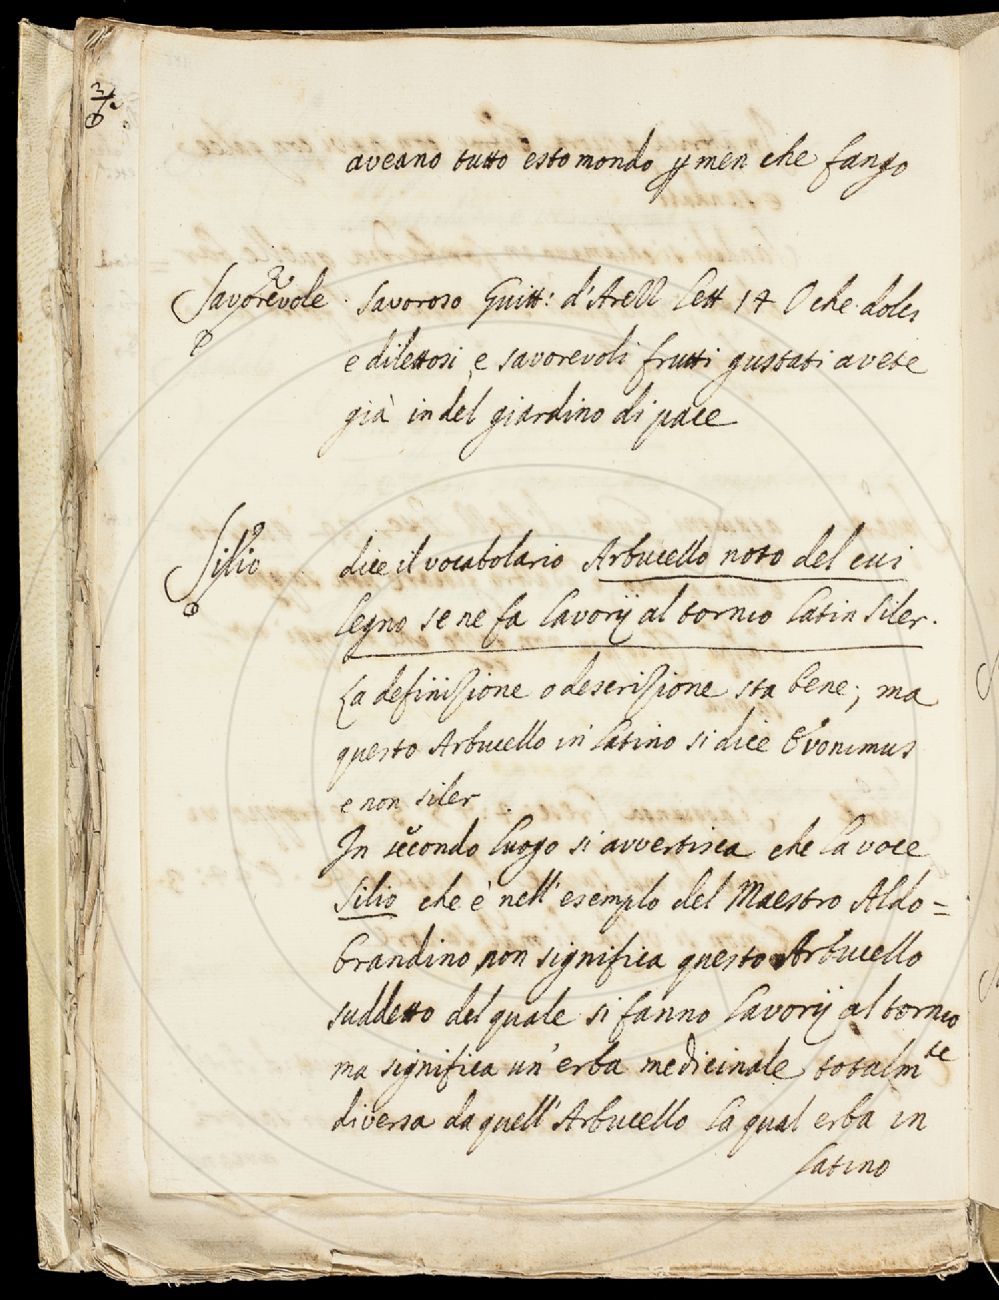 aveano tutto esto mondo p men che fango
Savorevole. Savoroso Guitt: d'Arezz Lett 14 O che dolci
e dilettosi, e savorevoli frutti gustati avete
già indel giardino di pace
Silio dice il vocabolario Arbucello noto del cui
legno se ne fa lavorij al tornio latin siler.
La definizione o descrizione sta bene; ma
questo Arbucello in latino si dice Evonimus
e non siler
In secondo luogo si avvertisca che la voce
Silio che è nell'esempio del Maestro Aldo=
brandino non significa questo Arbucello
suddetto del quale si fanno lavorij al tornio
ma significa un'erba medicinale totalmte
diversa da quell'Arbucello la qual erba in
latino